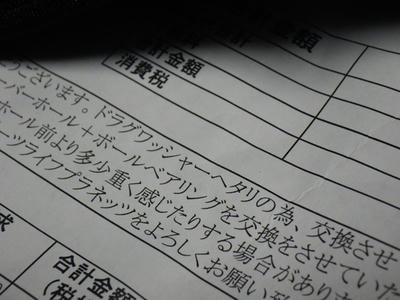 計金額
計金額
消費税
うございます。ドラグワッシャーヘタリの為、交換させ
ーバーホール＋ボールベアリングを交換をさせていた
ホール前より多少重く感じたりする場合があり
ーツライフプラネッツをよろしくお願い致
求
合計金額
(税